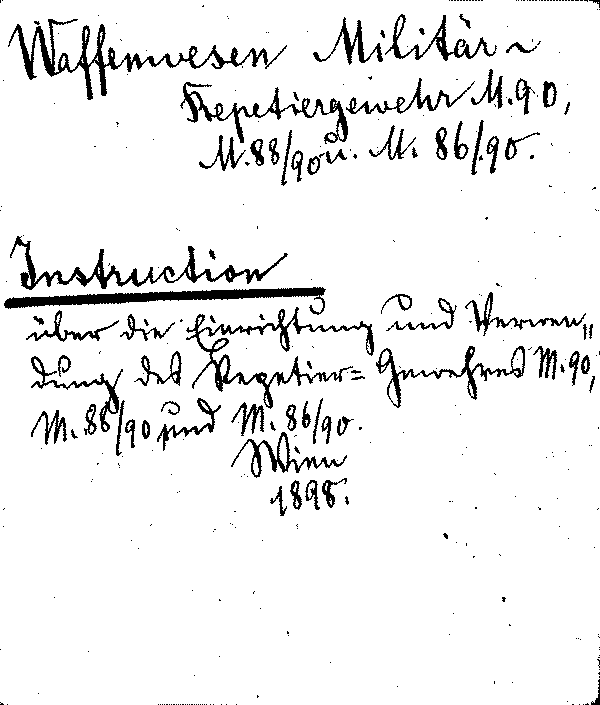 Waffenwesen Militär-
Repetiergewehr M.90,
M.88/90 u. M. 86/90.
Instruction
über die Einrichtung und Verwen„
dung des Repetier= Gewehres M.90,
M.88/90 und M. 86/90.
Wien
1898.